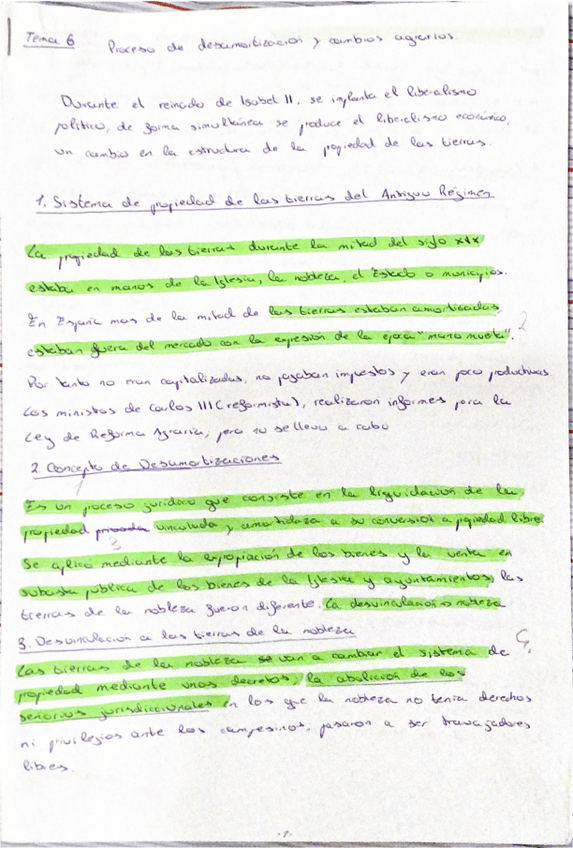 Tema 6 Proceso de desamortización y cambios agrarios
Durante el reinado de Isabel II, se implanta el liberalismo
político, de forma simultánea se produce el liberalismo económico,
un cambio en la estructura de la propiedad de las tierras.
1. Sistema de propiedad de las tierras del Antiguo Régimen
La propiedad de las tierras durante la mitad del siglo XIX
estaba en manos de la Iglesia, la nobleza, el Estado o municipios.
En España mas de la mitad de las tierras estaban amortizadas,
estaban fuera del mercado con la expresión de la época "mano muerta". 2
Por tanto no eran capitalizadas, no pagaban impuestos y eran poco productivas
Los ministros de Carlos III (reformista), realizaron informes para la
Ley de Reforma Agraria, pero no se llevo a cabo
2. Concepto de Desamortizaciones
Es un proceso jurídico que consiste en la liquidación de la
propiedad privada vinculada y amortizada a su conversión a propiedad libre
3
Se aplicó mediante la expropiación de los bienes y la venta en
subasta pública de los bienes de la Iglesia y ayuntamientos, las
tierras de la nobleza fueron diferente. La desvinculación → nobleza
3. Desvinculación a las tierras de la nobleza
Las tierras de la nobleza se van a cambiar el sistema de
propiedad mediante unos decretos, la abolición de los
señorios jurisdiccionales en los que la nobleza no tenia derechos
ni privilegios ante los campesinos, pasaron a ser trabajadores
libres.
-1-